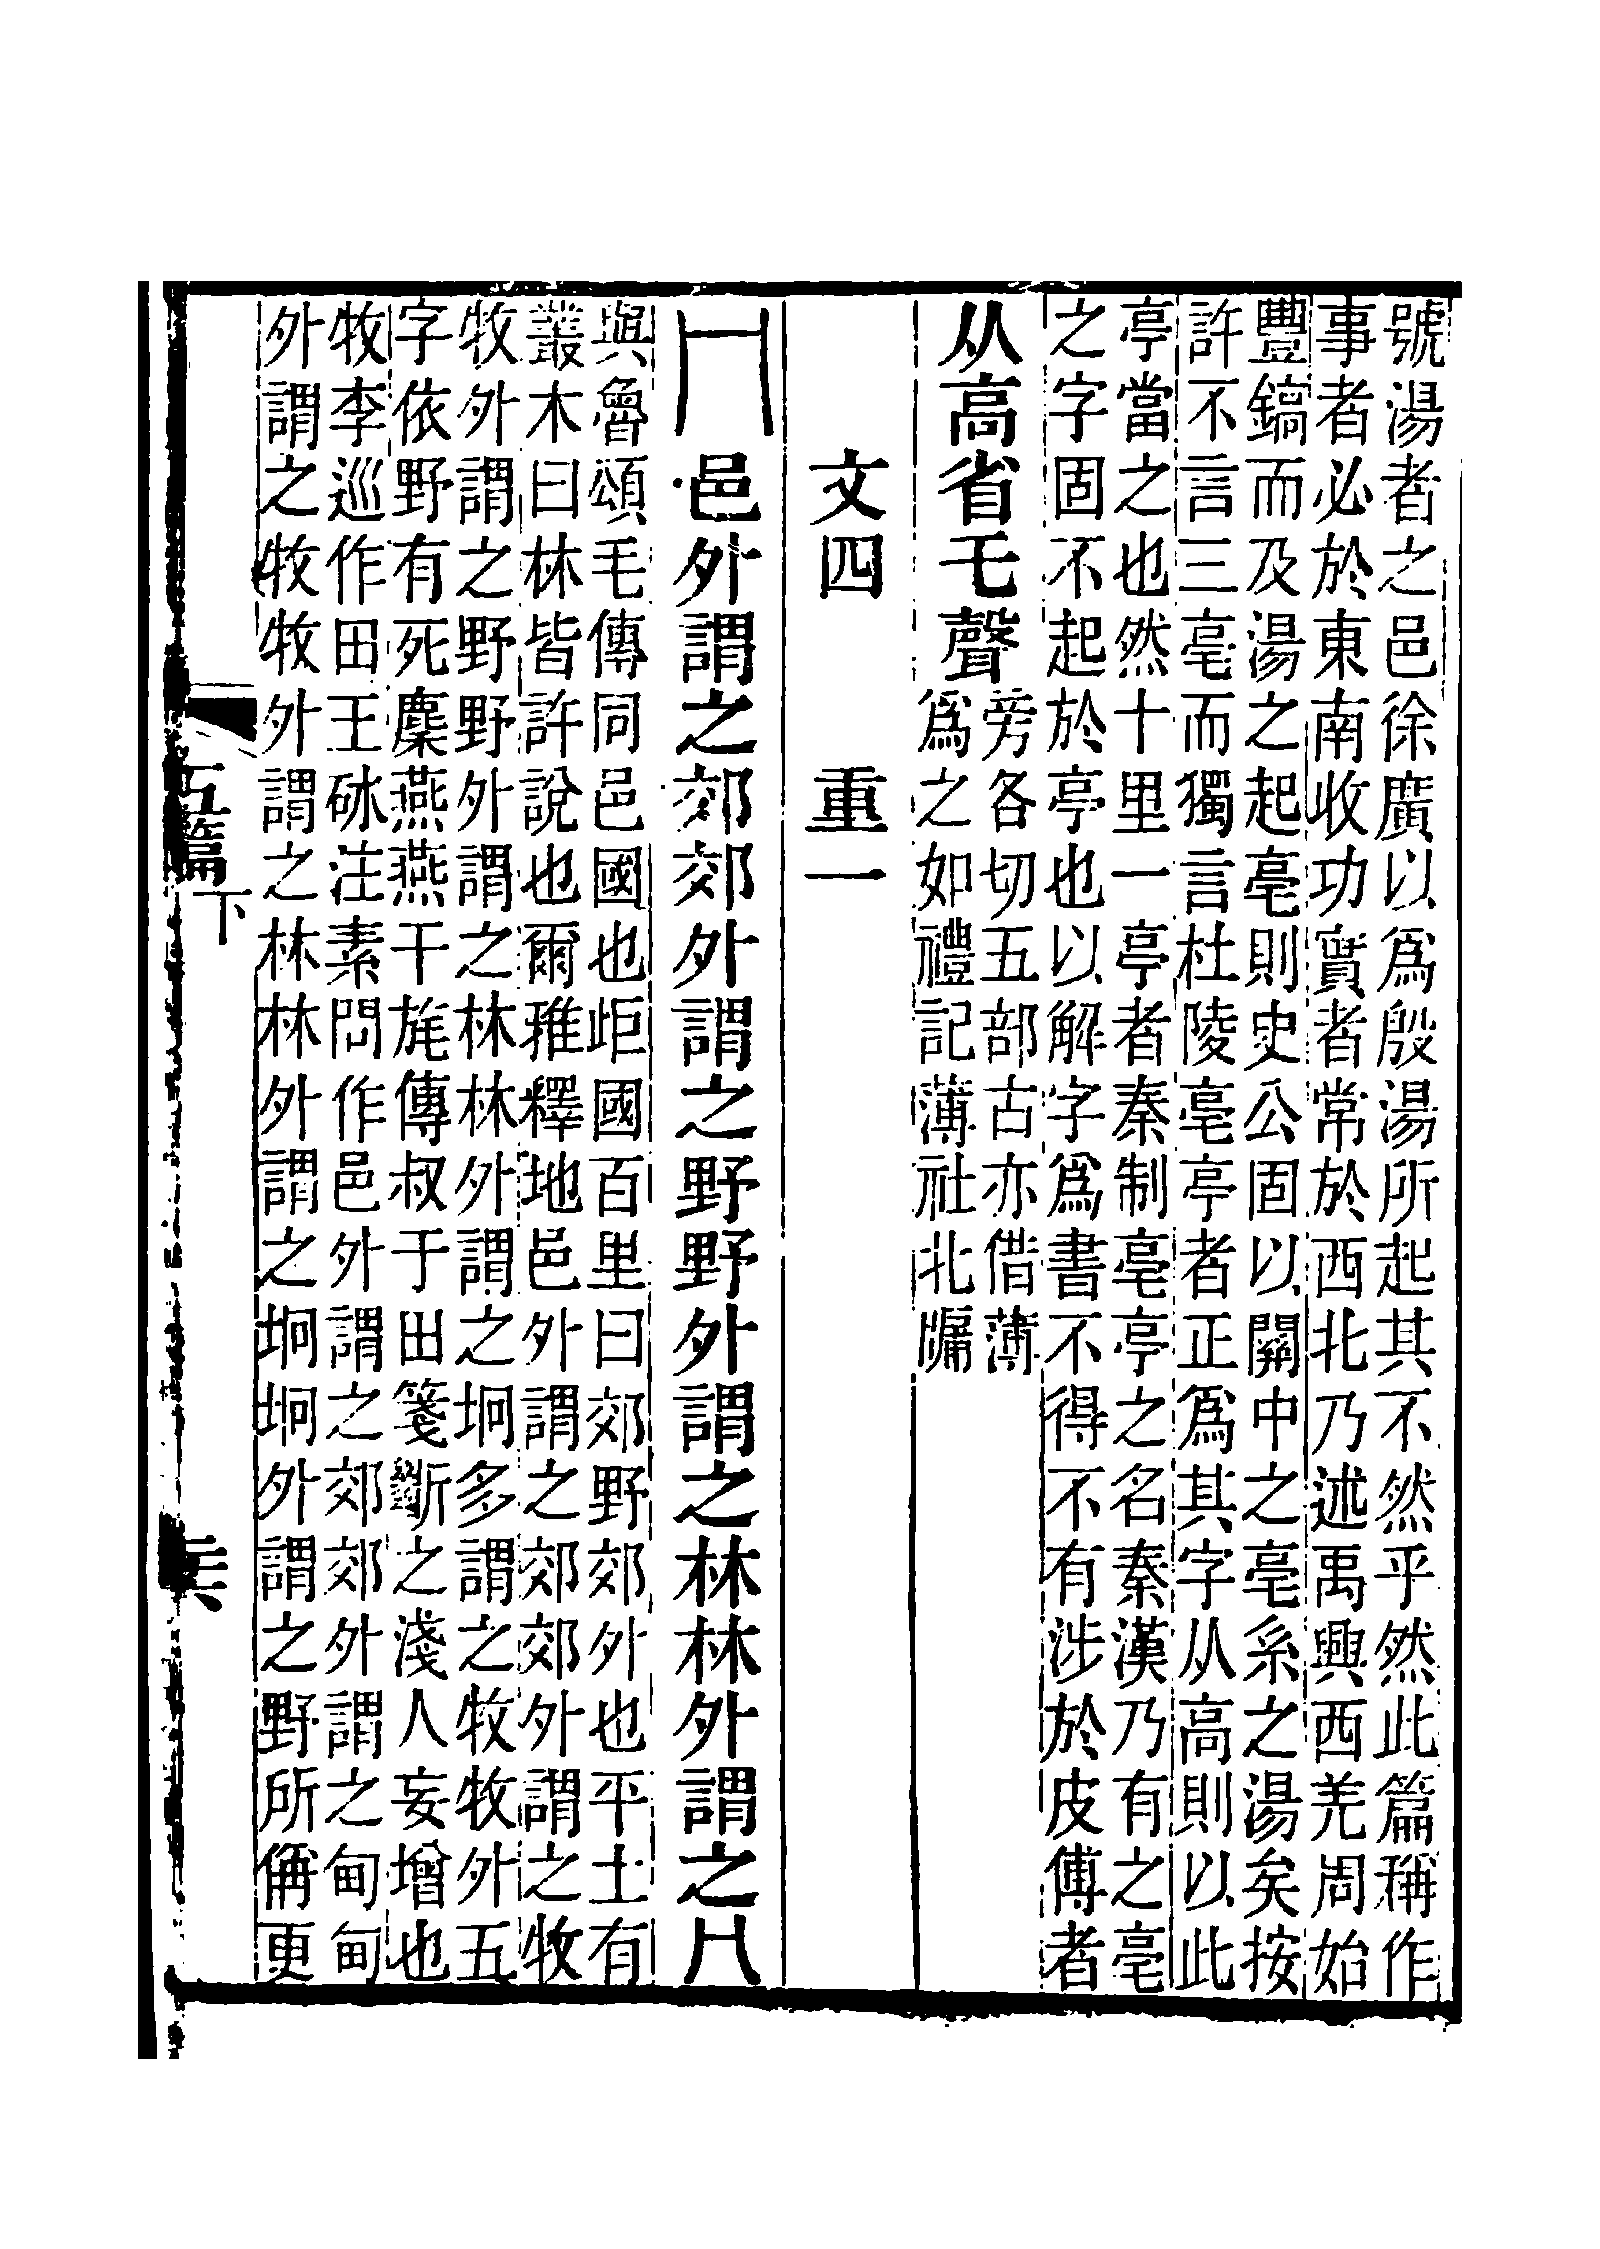 號湯者之邑徐廣以爲殷湯所起其不然乎然此篇稱作
事者必於東南收功實者常於西北乃述禹興西羌周始
豐鎬而及湯之起亳則史公固以關中之亳系之湯矣按
許不言三亳而獨言杜陵亳亭者正爲其字从高則以此
亭當之也然十里一亭亭者秦制亳亭之名秦漢乃有之亳
之字固不起於亭也以解字爲書不得不有涉於皮傅者
从高省乇聲
旁各切五部古亦借薄
爲之如禮記薄社北牖
文四 重一
冂邑外謂之郊郊外謂之野野外謂之林林外謂之冂
與魯頌毛傳同邑國也歫國百里曰郊野郊外也平土有
叢木曰林皆許說也爾雅釋地邑外謂之郊郊外謂之牧
牧外謂之野野外謂之林林外謂之坰多謂之牧牧外五
字依野有死麇燕燕干旄傳叔于田箋斵之淺人妄增也
牧李巡作田王砅注素問作邑外謂之郊郊外謂之甸甸
外謂之牧牧外謂之林林外謂之坰坰外謂之野所偁更
五篇下